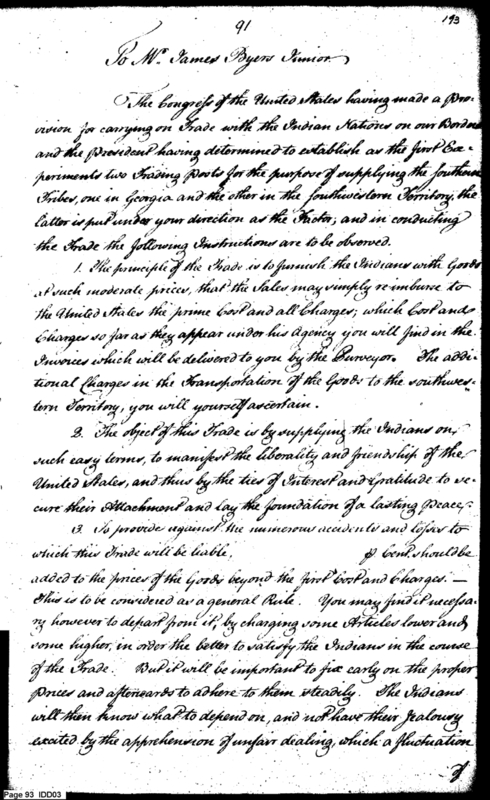 91
193
To Mr. James Byers Junior
The Congress of the United States having made a Pro-
vision for carrying on Trade with the Indian Nations on our Borders
and the President having determined to establish as the first Ex-
periments two Trading Posts for the purpose of supplying the southern
Tribes, one in Georgia and the other in the southwestern Territory, the
latter is put under your direction as the Factor, and in conducting
the Trade the following Instructions are to be observed.
1. The principle of the Trade is to furnish the Indians with Goods
at such moderate prices, that the Sales may simply re-imburse to
the United States the prime Cost and all Charges; which Cost and
Charges so far as they appear under his Agency you will find in the
Invoices which will be delivered to you by the Purveyor. The addi-
tional Charges in the Transportation of the Goods to the southwes-
tern Territory, you will yourself ascertain.
2. The object of this Trade is by supplying the Indians on
such easy terms, to manifest the liberality and friendship of the
United States, and thus by the ties of Interest and Gratitude to se-
cure their Attachment and lay the foundation of a lasting Peace.
3. To provide against the numerous accidents and losses to
which this Trade will be liable, ⅌ Cent. should be
added to the prices of the Goods beyond the first Cost and Charges. —
This is to be considered as a general Rule. You may find it necessa-
ry however to depart from it, by charging some Articles lower and
some higher, in order the better to satisfy the Indians in the course
of the Trade. But it will be important to fix early on the proper
Prices and afterwards to adhere to them steadily. The Indians
will then know what to depend on, and not have their Jealousy
excited by the apprehension of unfair dealing, which a fluctuation
of
Page 93 IDD03